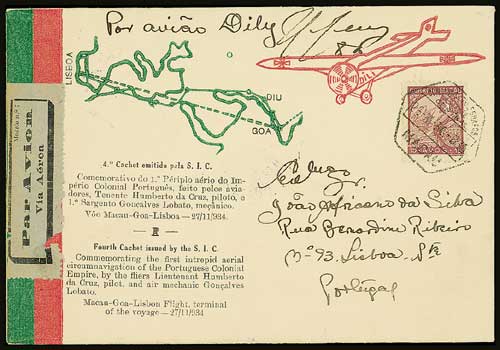 Por avião Dily
LISBOA
DIU
GOA
DILI
Par Avion
Via Aérea
4.º Cachet emitido pela S. I. C.
Comemorativo do 1.º Périplo aério do Im-
pério Colonial Português, feito pelos avia-
dores, Tenente Humberto da Cruz, piloto, e
1.º Sargento Gonçalves Lobato, mecânico.
Vôo Macau-Goa-Lisboa — 27/11/934.
Fourth Cachet issued by the S. I. C.
Commemorating the first intrepid aerial
circumnavigation of the Portuguese Colonial
Empire, by the fliers Lieutenant Humberto
da Cruz, pilot, and air mechanic Gonçalves
Lobato.
Macau-Goa-Lisbon Flight, terminal
of the voyage — 27/11/934
João Africano da Silva
Rua Bernardim Ribeiro
Nº 93. Lisboa
Portugal